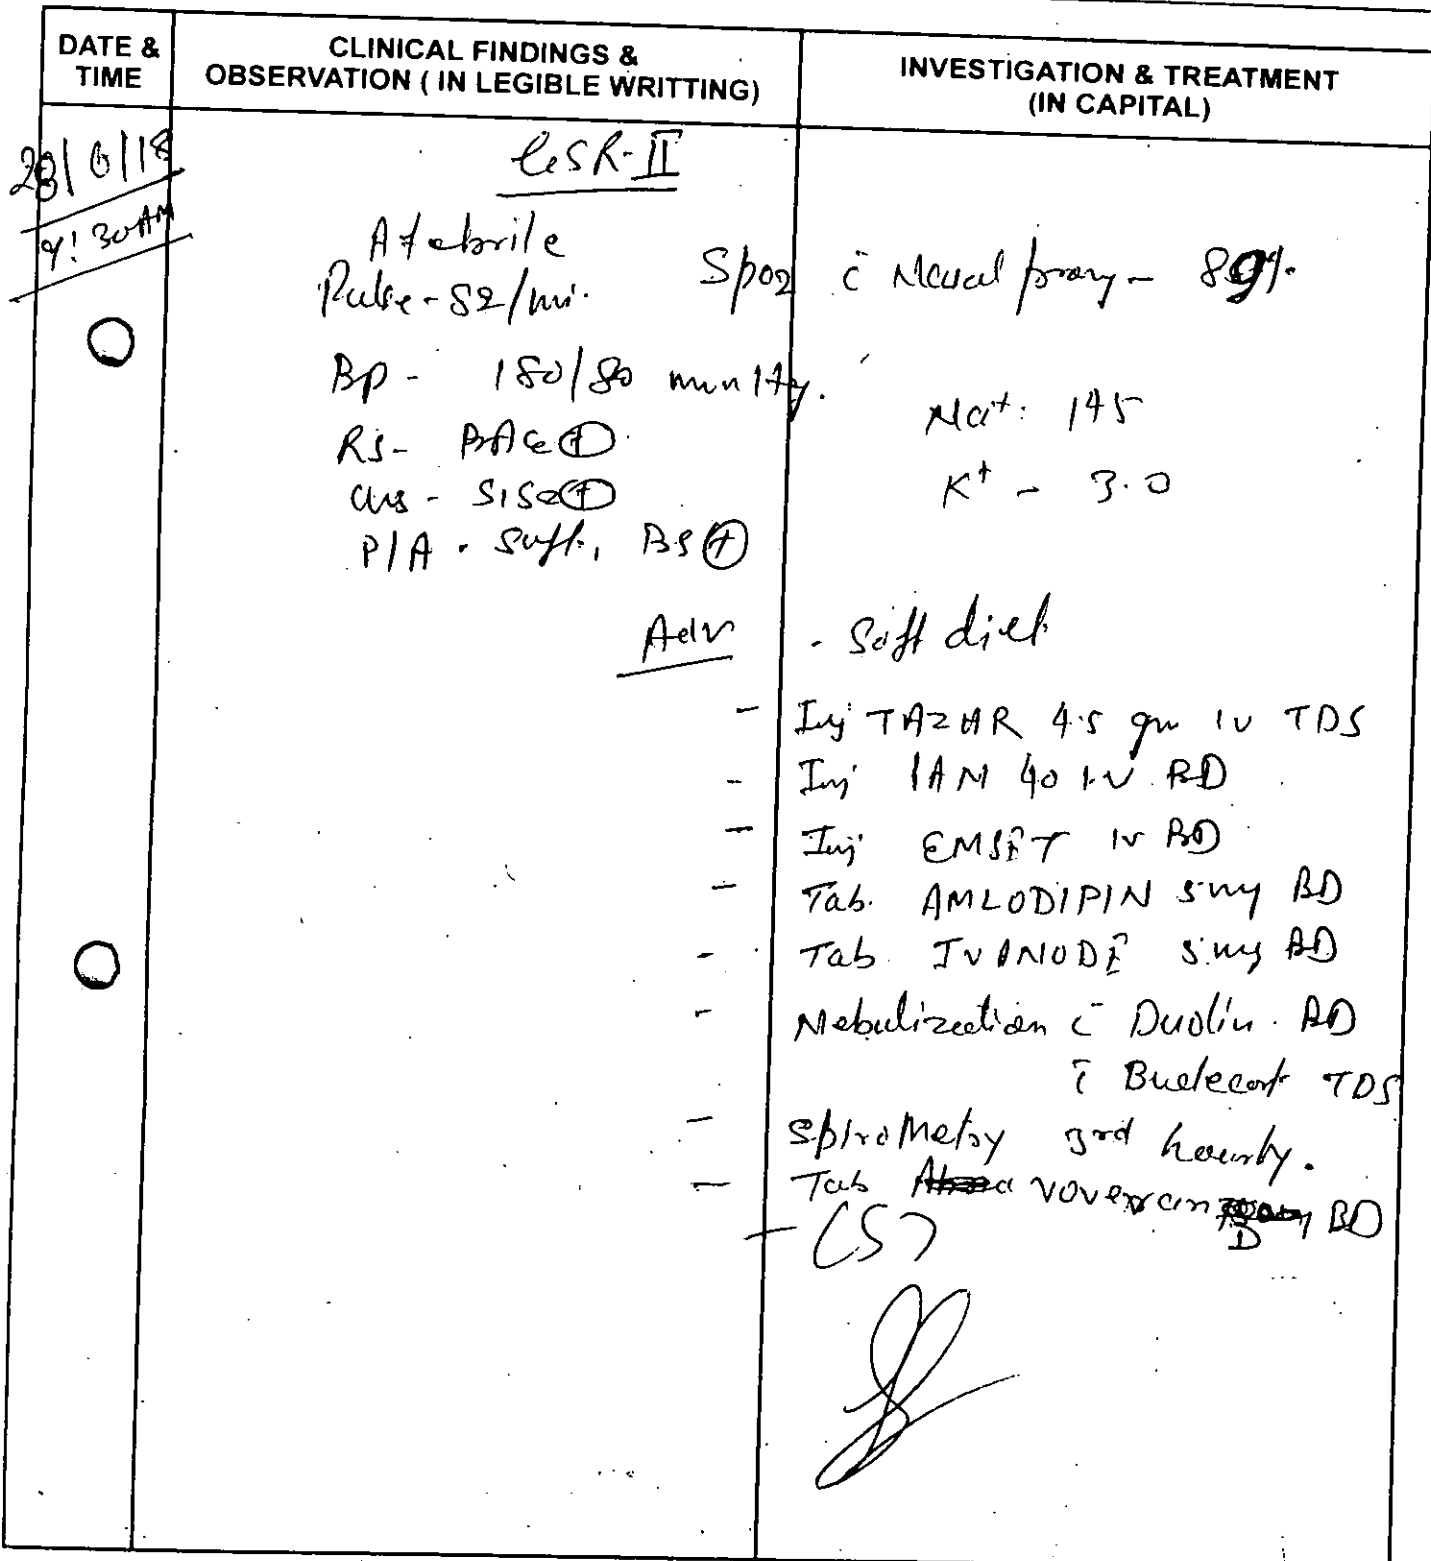 DATE & TIME
CLINICAL FINDINGS & OBSERVATION ( IN LEGIBLE WRITTING)
INVESTIGATION & TREATMENT (IN CAPITAL)
28/6/18
9:30AM
Afebrile
Pulse - 82/mi.
SpO2 c̄ Nasal prong - 89%
BP - 180/80 mm Hg.
Na+: 145
RS - BAE ⊕
K+ - 3.0
CVS - S1S2 ⊕
P/A - Soft, BS ⊕
Adv
- Soft diet
- Inj TAZAR 4.5 gm IV TDS
- Inj PAN 40 IV BD
- Inj EMSET IV BD
- Tab. AMLODIPIN 5mg BD
- Tab IVANODE 5mg BD
- Nebulization c̄ Duolin BD
c̄ Budecort TDS
- Spirometry 3rd hourly.
- Tab voveran D BD